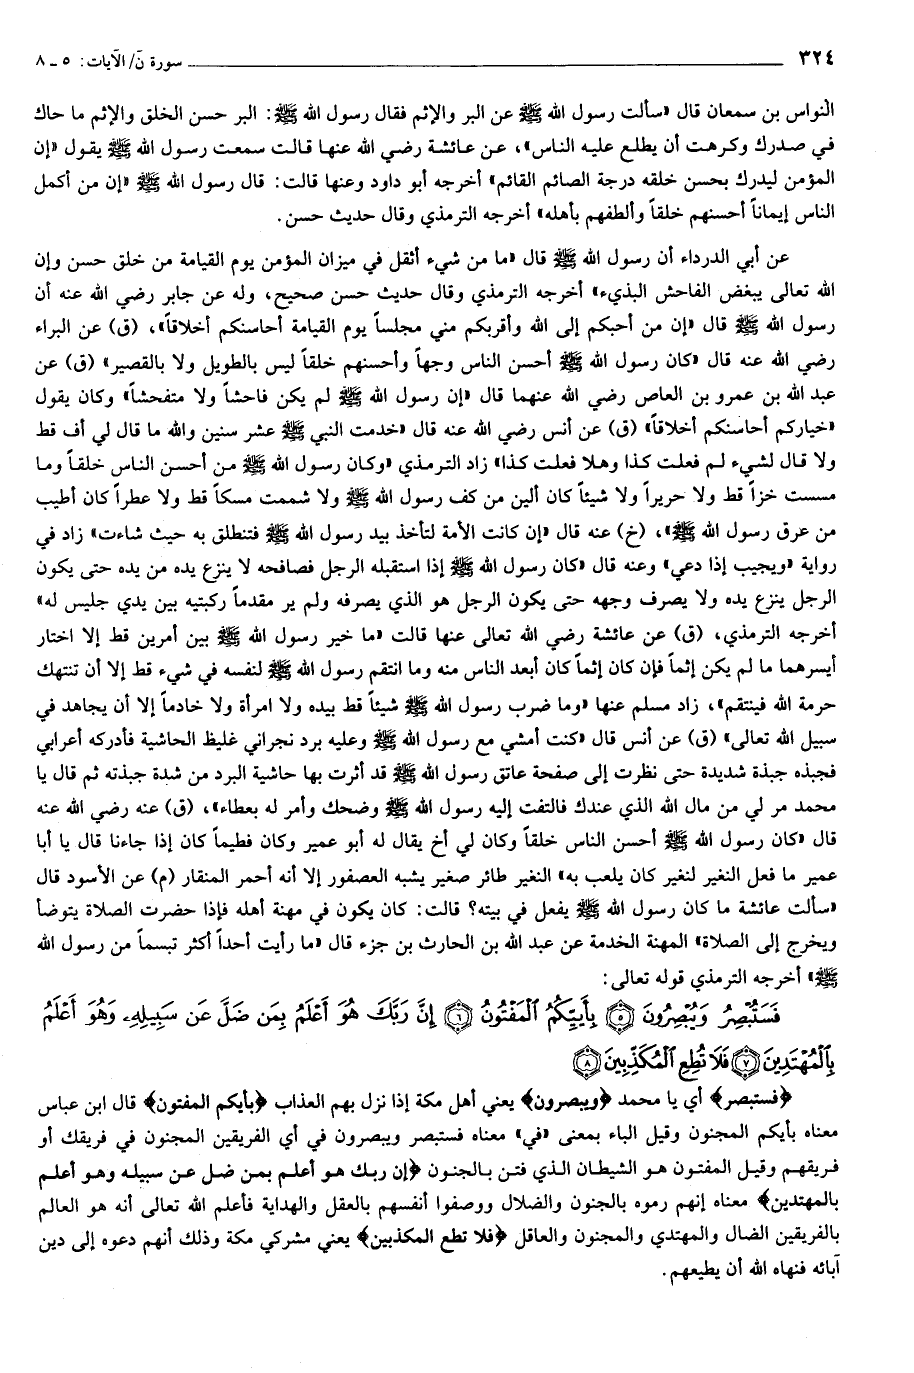 ٣٢٤ سورة نۤ/ الآيات: ٥ - ٨
النواس بن سمعان قال «سألت رسول الله ﷺ عن البر والإثم فقال رسول الله ﷺ: البر حسن الخلق والإثم ما حاك
في صدرك وكرهت أن يطلع عليه الناس»، عن عائشة رضي الله عنها قالت سمعت رسول الله ﷺ يقول «إن
المؤمن ليدرك بحسن خلقه درجة الصائم القائم» أخرجه أبو داود وعنها قالت: قال رسول الله ﷺ «إن من أكمل
الناس إيماناً أحسنهم خلقاً وألطفهم بأهله» أخرجه الترمذي وقال حديث حسن.
عن أبي الدرداء أن رسول الله ﷺ قال «ما من شيء أثقل في ميزان المؤمن يوم القيامة من خلق حسن وإن
الله تعالى يبغض الفاحش البذيء» أخرجه الترمذي وقال حديث حسن صحيح، وله عن جابر رضي الله عنه أن
رسول الله ﷺ قال «إن من أحبكم إلى الله وأقربكم مني مجلساً يوم القيامة أحاسنكم أخلاقاً»، (ق) عن البراء
رضي الله عنه قال «كان رسول الله ﷺ أحسن الناس وجهاً وأحسنهم خلقاً ليس بالطويل ولا بالقصير» (ق) عن
عبد الله بن عمرو بن العاص رضي الله عنهما قال «إن رسول الله ﷺ لم يكن فاحشاً ولا متفحشاً» وكان يقول
«خياركم أحاسنكم أخلاقاً» (ق) عن أنس رضي الله عنه قال «خدمت النبي ﷺ عشر سنين والله ما قال لي أف قط
ولا قال لشيء لم فعلت كذا وهلا فعلت كذا» زاد الترمذي «وكان رسول الله ﷺ من أحسن الناس خلقاً وما
مسست خزاً قط ولا حريراً ولا شيئاً كان ألين من كف رسول الله ﷺ ولا شممت مسكاً قط ولا عطراً كان أطيب
من عرق رسول الله ﷺ»، (خ) عنه قال «إن كانت الأمة لتأخذ بيد رسول الله ﷺ فتنطلق به حيث شاءت» زاد في
رواية «ويجيب إذا دعي» وعنه قال «كان رسول الله ﷺ إذا استقبله الرجل فصافحه لا ينزع يده من يده حتى يكون
الرجل ينزع يده ولا يصرف وجهه حتى يكون الرجل هو الذي يصرفه ولم ير مقدماً ركبتيه بين يدي جليس له»
أخرجه الترمذي، (ق) عن عائشة رضي الله تعالى عنها قالت «ما خير رسول الله ﷺ بين أمرين قط إلا اختار
أيسرهما ما لم يكن إثماً فإن كان إثماً كان أبعد الناس منه وما انتقم رسول الله ﷺ لنفسه في شيء قط إلا أن تنتهك
حرمة الله فينتقم»، زاد مسلم عنها «وما ضرب رسول الله ﷺ شيئاً قط بيده ولا امرأة ولا خادماً إلا أن يجاهد في
سبيل الله تعالى» (ق) عن أنس قال «كنت أمشي مع رسول الله ﷺ وعليه برد نجراني غليظ الحاشية فأدركه أعرابي
فجبذه جبذة شديدة حتى نظرت إلى صفحة عاتق رسول الله ﷺ قد أثرت بها حاشية البرد من شدة جبذته ثم قال يا
محمد مر لي من مال الله الذي عندك فالتفت إليه رسول الله ﷺ وضحك وأمر له بعطاء»، (ق) عنه رضي الله عنه
قال «كان رسول الله ﷺ أحسن الناس خلقاً وكان لي أخ يقال له أبو عمير وكان فطيماً كان إذا جاءنا قال يا أبا
عمير ما فعل النغير لنغير كان يلعب به» النغير طائر صغير يشبه العصفور إلا أنه أحمر المنقار (م) عن الأسود قال
«سألت عائشة ما كان رسول الله ﷺ يفعل في بيته؟ قالت: كان يكون في مهنة أهله فإذا حضرت الصلاة يتوضأ
ويخرج إلى الصلاة» المهنة الخدمة عن عبد الله بن الحارث بن جزء قال «ما رأيت أحداً أكثر تبسماً من رسول الله
ﷺ» أخرجه الترمذي قوله تعالى:
فَسَتُبْصِرُ وَيُبْصِرُونَ ﴿٥﴾ بِأَييِّكُمُ ٱلْمَفْتُونُ ﴿٦﴾ إِنَّ رَبَّكَ هُوَ أَعْلَمُ بِمَن ضَلَّ عَن سَبِيلِهِۦ وَهُوَ أَعْلَمُ
بِٱلْمُهْتَدِينَ ﴿٧﴾ فَلَا تُطِعِ ٱلْمُكَذِّبِينَ ﴿٨﴾
﴿فستبصر﴾ أي يا محمد ﴿ويبصرون﴾ يعني أهل مكة إذا نزل بهم العذاب ﴿بأيكم المفتون﴾ قال ابن عباس
معناه بأيكم المجنون وقيل الباء بمعنى «في» معناه فستبصر ويبصرون في أي الفريقين المجنون في فريقك أو
فريقهم وقيل المفتون هو الشيطان الذي فتن بالجنون ﴿إن ربك هو أعلم بمن ضل عن سبيله وهو أعلم
بالمهتدين﴾ معناه إنهم رموه بالجنون والضلال ووصفوا أنفسهم بالعقل والهداية فأعلم الله تعالى أنه هو العالم
بالفريقين الضال والمهتدي والمجنون والعاقل ﴿فلا تطع المكذبين﴾ يعني مشركي مكة وذلك أنهم دعوه إلى دين
آبائه فنهاه الله أن يطيعهم.